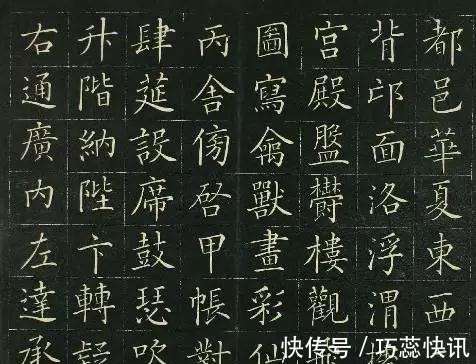 都邑華夏東西
背邙面洛浮渭
宮殿盤欝樓觀
圖寫禽獸畫彩仙
丙舍傍啓甲帳對
肆筵設席鼓瑟吹
升階納陛卞轉疑
右通廣内左達承
快传号/巧蕊快讯